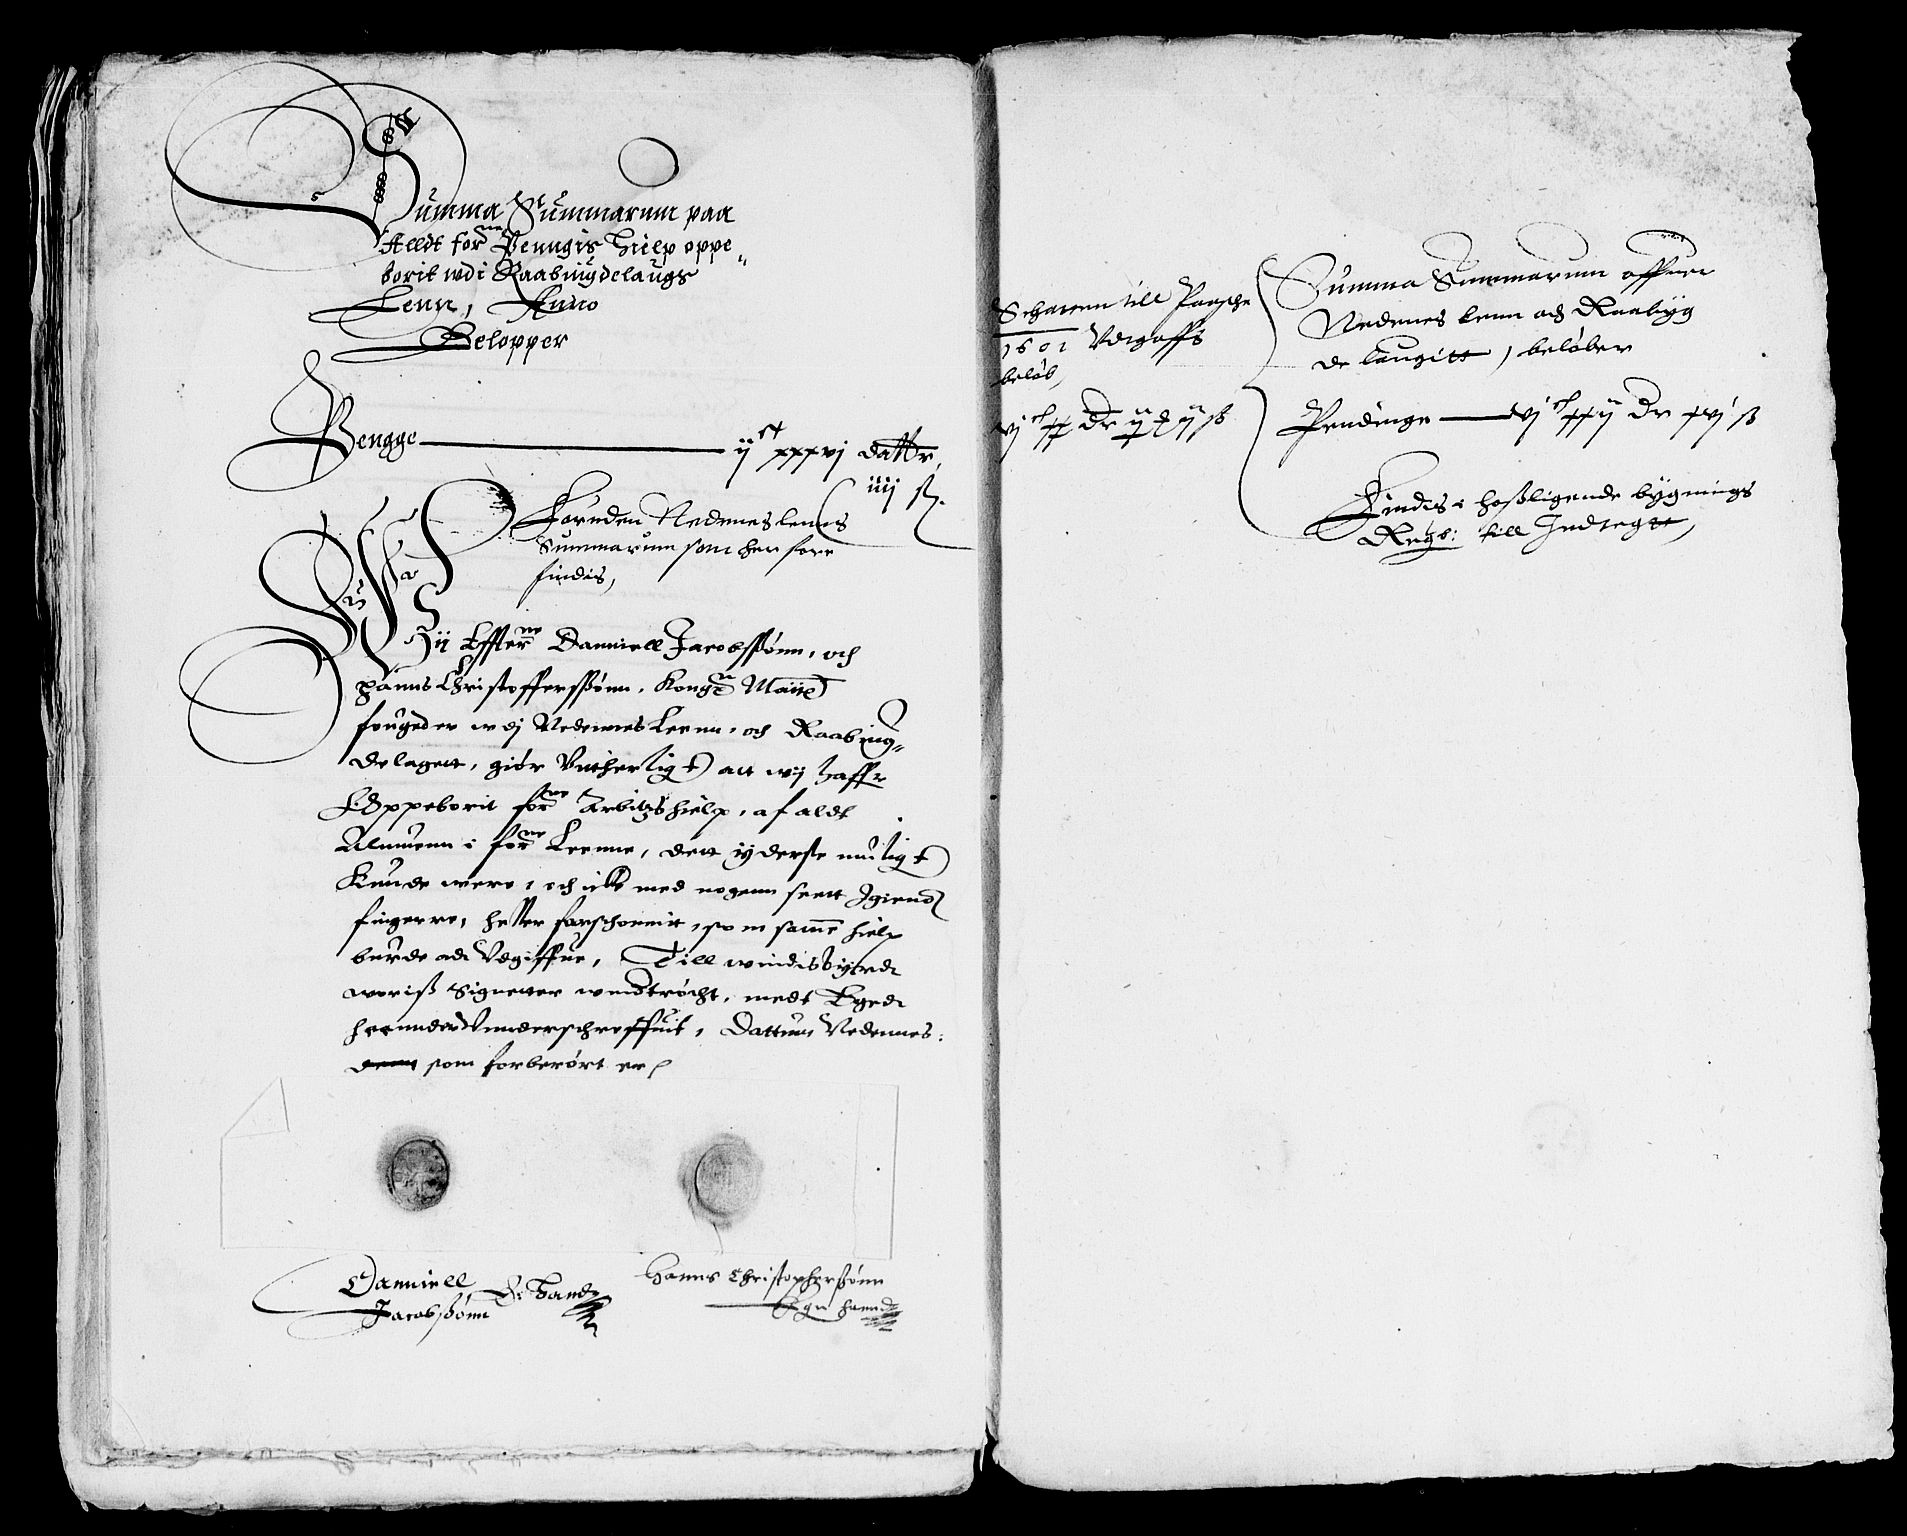 Summa Summarum paa
Alldt for:ne Penngis Hielp oppe„
borit wdi Raabiugdelaugs
Lenn, Anno
Belopper
Pengge ij ct xxxvj dallr,
iiij ß.
Foruden Nedenes lenes
Summarum som her fore
findis,
Wij Effter:ne Danniell Jacobssønn, och
Hanns Christofferssønn, Kong: Maij:
fougeder wdj Nedennes Leenn, och Raabiug„
delagett, giør Vitherligt att wij haffr
Oppeborit for:ne Arbitzhielp, af aldt
Almuenn i for:ne Leenne, dett yderste muligt
Kunde were, och icke med nogenn seett Igiend
fingerre, heller farschonnit, som samme hielp
burde att Vdgiffue, Till windisbyrdt
woriß Signetter wndtrøcht, medt Egedt
heennder Vnnderschreffuit, Dattum Nedennes:
som forberørt er
Danniell
Jacobssønn
Eg: Handt
Hanns Christopherssønn
Egn hanndt
Schatten till Paasche
1601 Vdgaffs
beløb,
vj c xx dr ij ß
Summa Summarum offuer
Nedenes lenn och Raabyg
de laugitt, beløber
Pendinge vj c xxij dr xvj ß
Findis i hoßligende bygnings
Regs: till Indtegt,